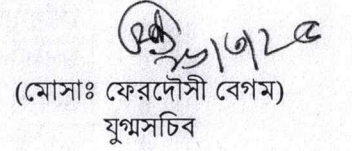 (মোসাঃ ফেরদৌসী বেগম)
যুগ্মসচিব